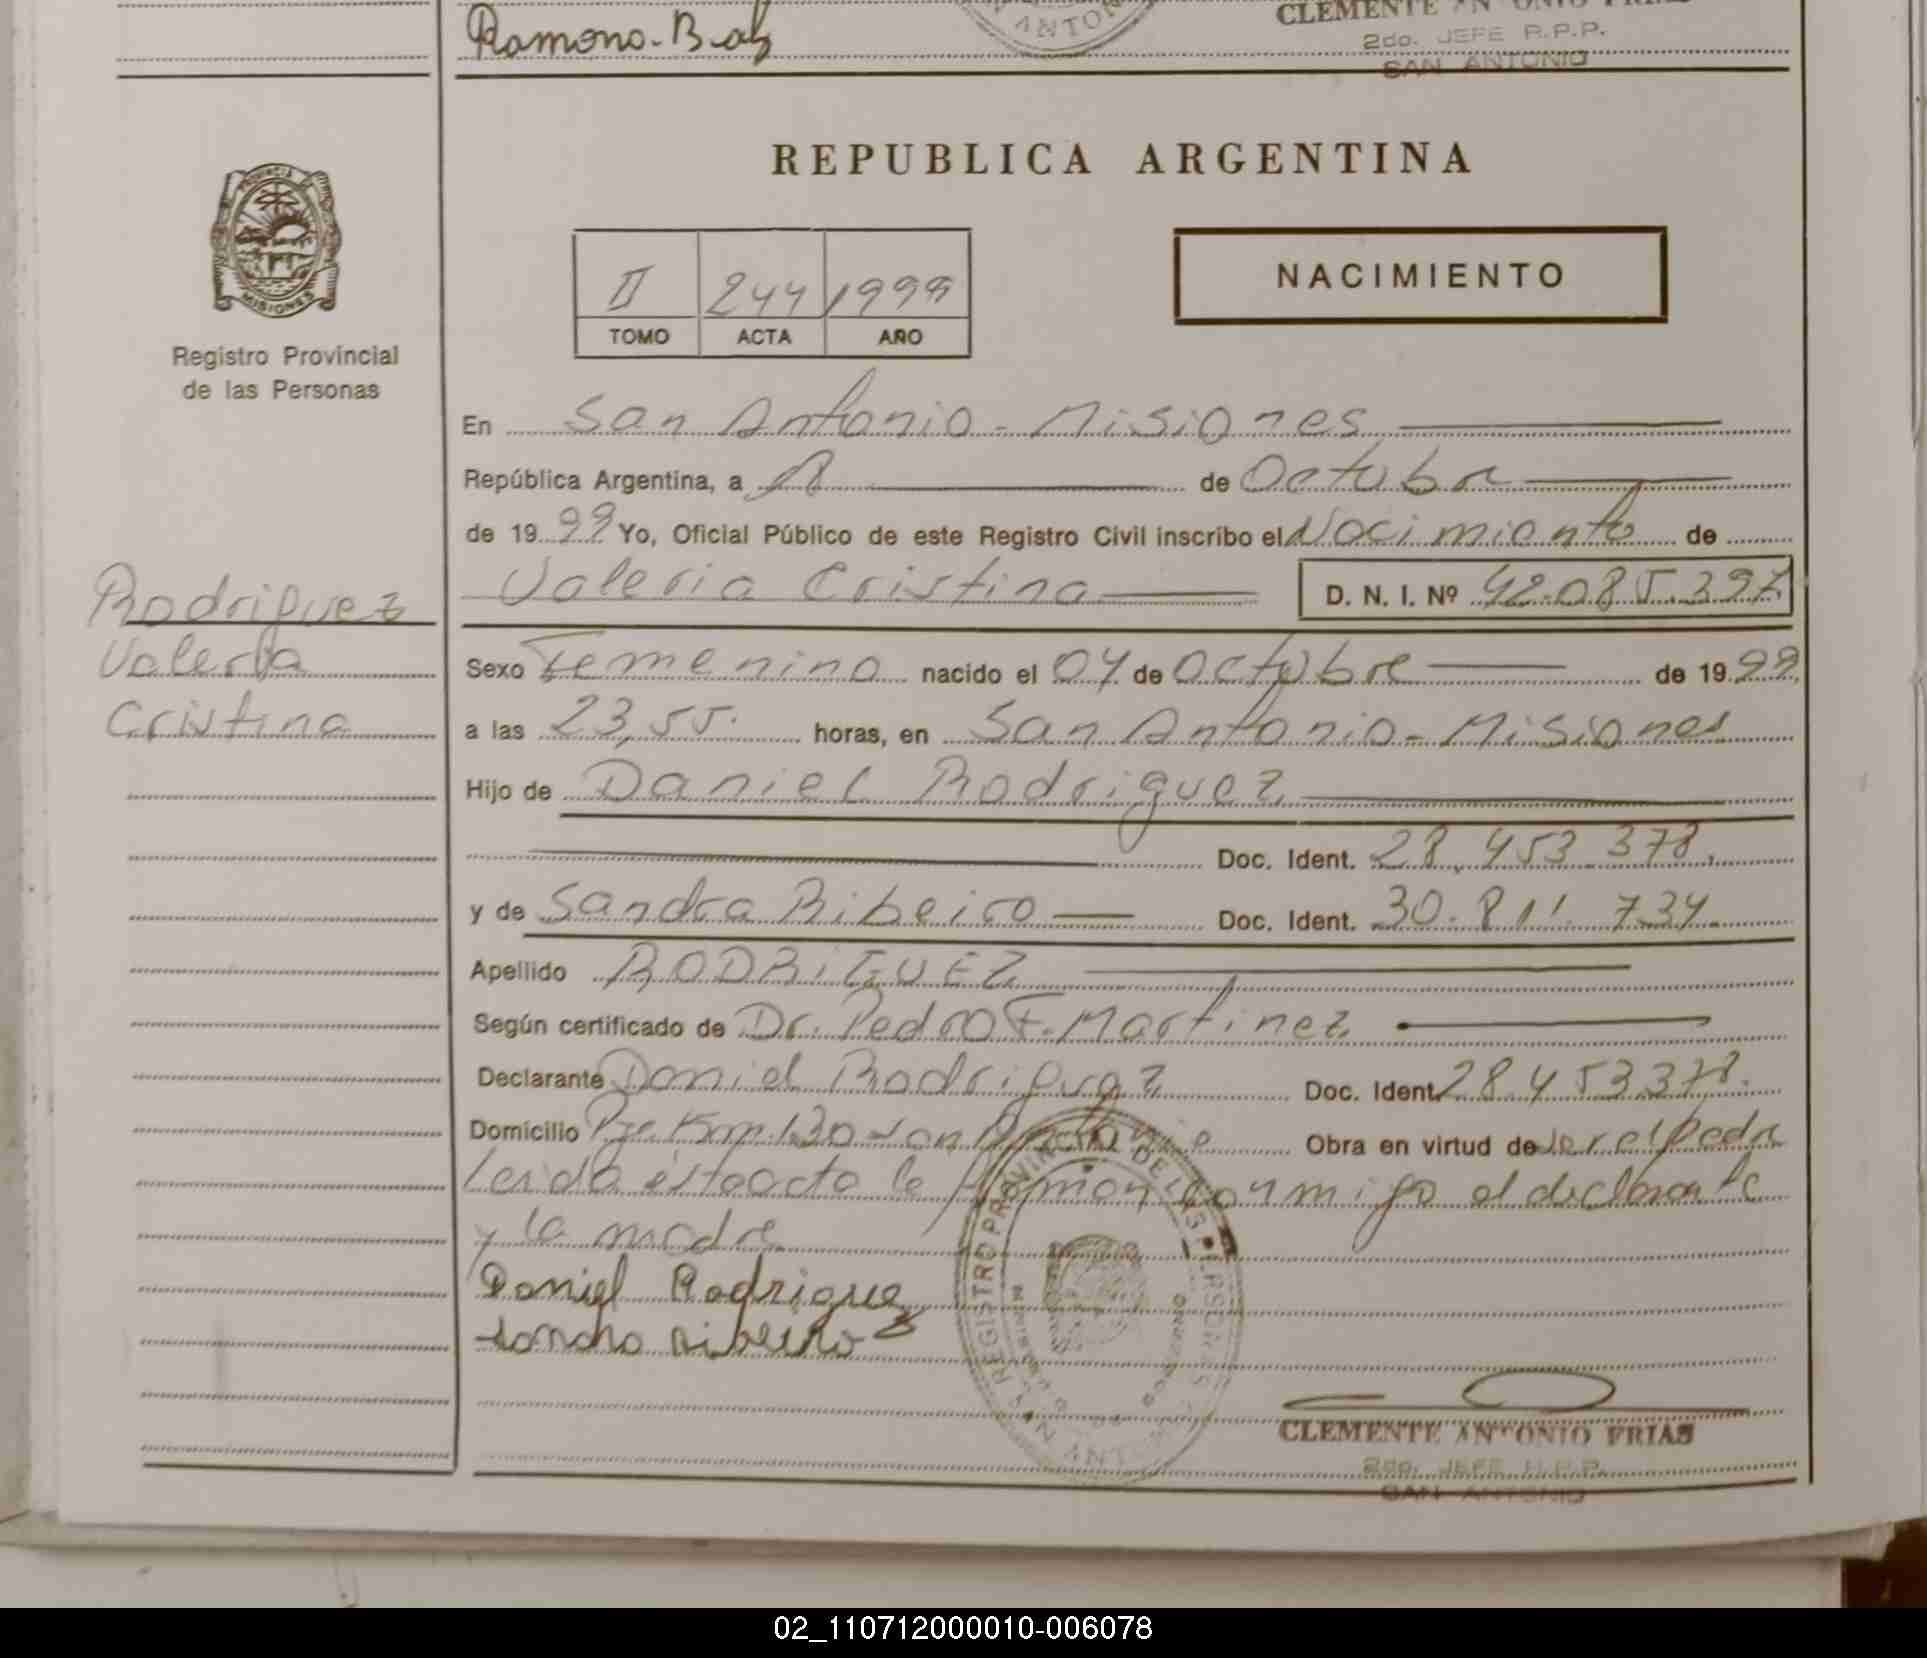 Ramona B
ANTO
CLEMENTE ANTONIO FRIAS
2do. JEFE R.P.P.
SAN ANTONIO
PROVINCIA
MISIONES
Registro Provincial
de las Personas
REPUBLICA ARGENTINA
II 244 1999
TOMO ACTA AÑO
NACIMIENTO
En San Antonio - Misiones
República Argentina, a de Octubre
de 1999 Yo, Oficial Público de este Registro Civil inscribo el Nacimiento de
Valeria Cristina D. N. I. Nº 42.085.397
Rodriguez
Valeria
Cristina
Sexo Femenino nacido el 04 de Octubre de 1999
a las 23,55. horas, en San Antonio - Misiones
Hijo de Daniel Rodriguez
Doc. Ident. 28.453.378.
y de Sandra Ribeiro Doc. Ident. 30.811.734
Apellido RODRIGUEZ
Según certificado de Dr. Pedro F. Martinez
Declarante Daniel Rodriguez Doc. Ident. 28.453.378.
Domicilio Pje. Km. 130 San Antonio Obra en virtud de ser el padre
Leida esta acta la firman conmigo el declarante
y la madre
Daniel Rodriguez
Sandra Ribeiro
REGISTRO PROVINCIAL DE LAS PERSONAS
MISIONES
SAN ANTONIO
CLEMENTE ANTONIO FRIAS
2do. JEFE R.P.P.
SAN ANTONIO
02_110712000010-006078